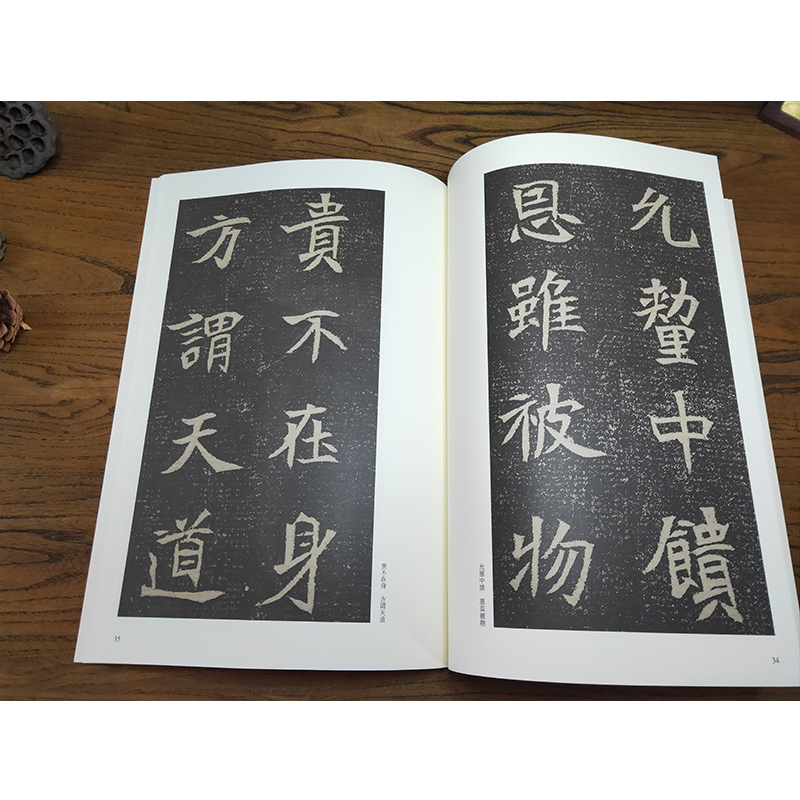 允釐中饋
恩雖被物
允厘中馈　恩虽被物
34
貴不在身
方謂天道
贵不在身　方谓天道
35